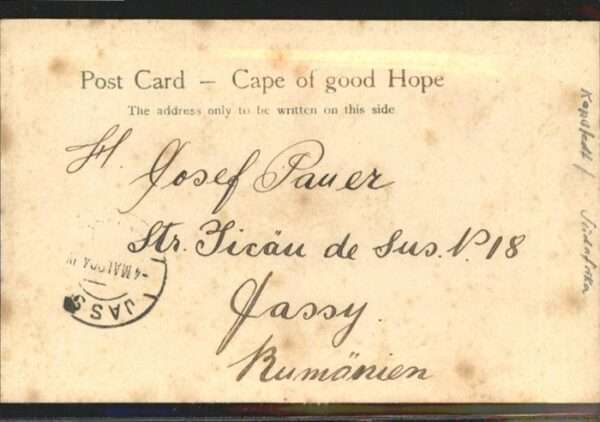 Post Card — Cape of good Hope
The address only to be written on this side.
H. Josef Pauer
Str. Ticău de Sus. No 18
Jassy.
Rumänien
Kapstadt / Südafrika
JASS
-4 MAI 904